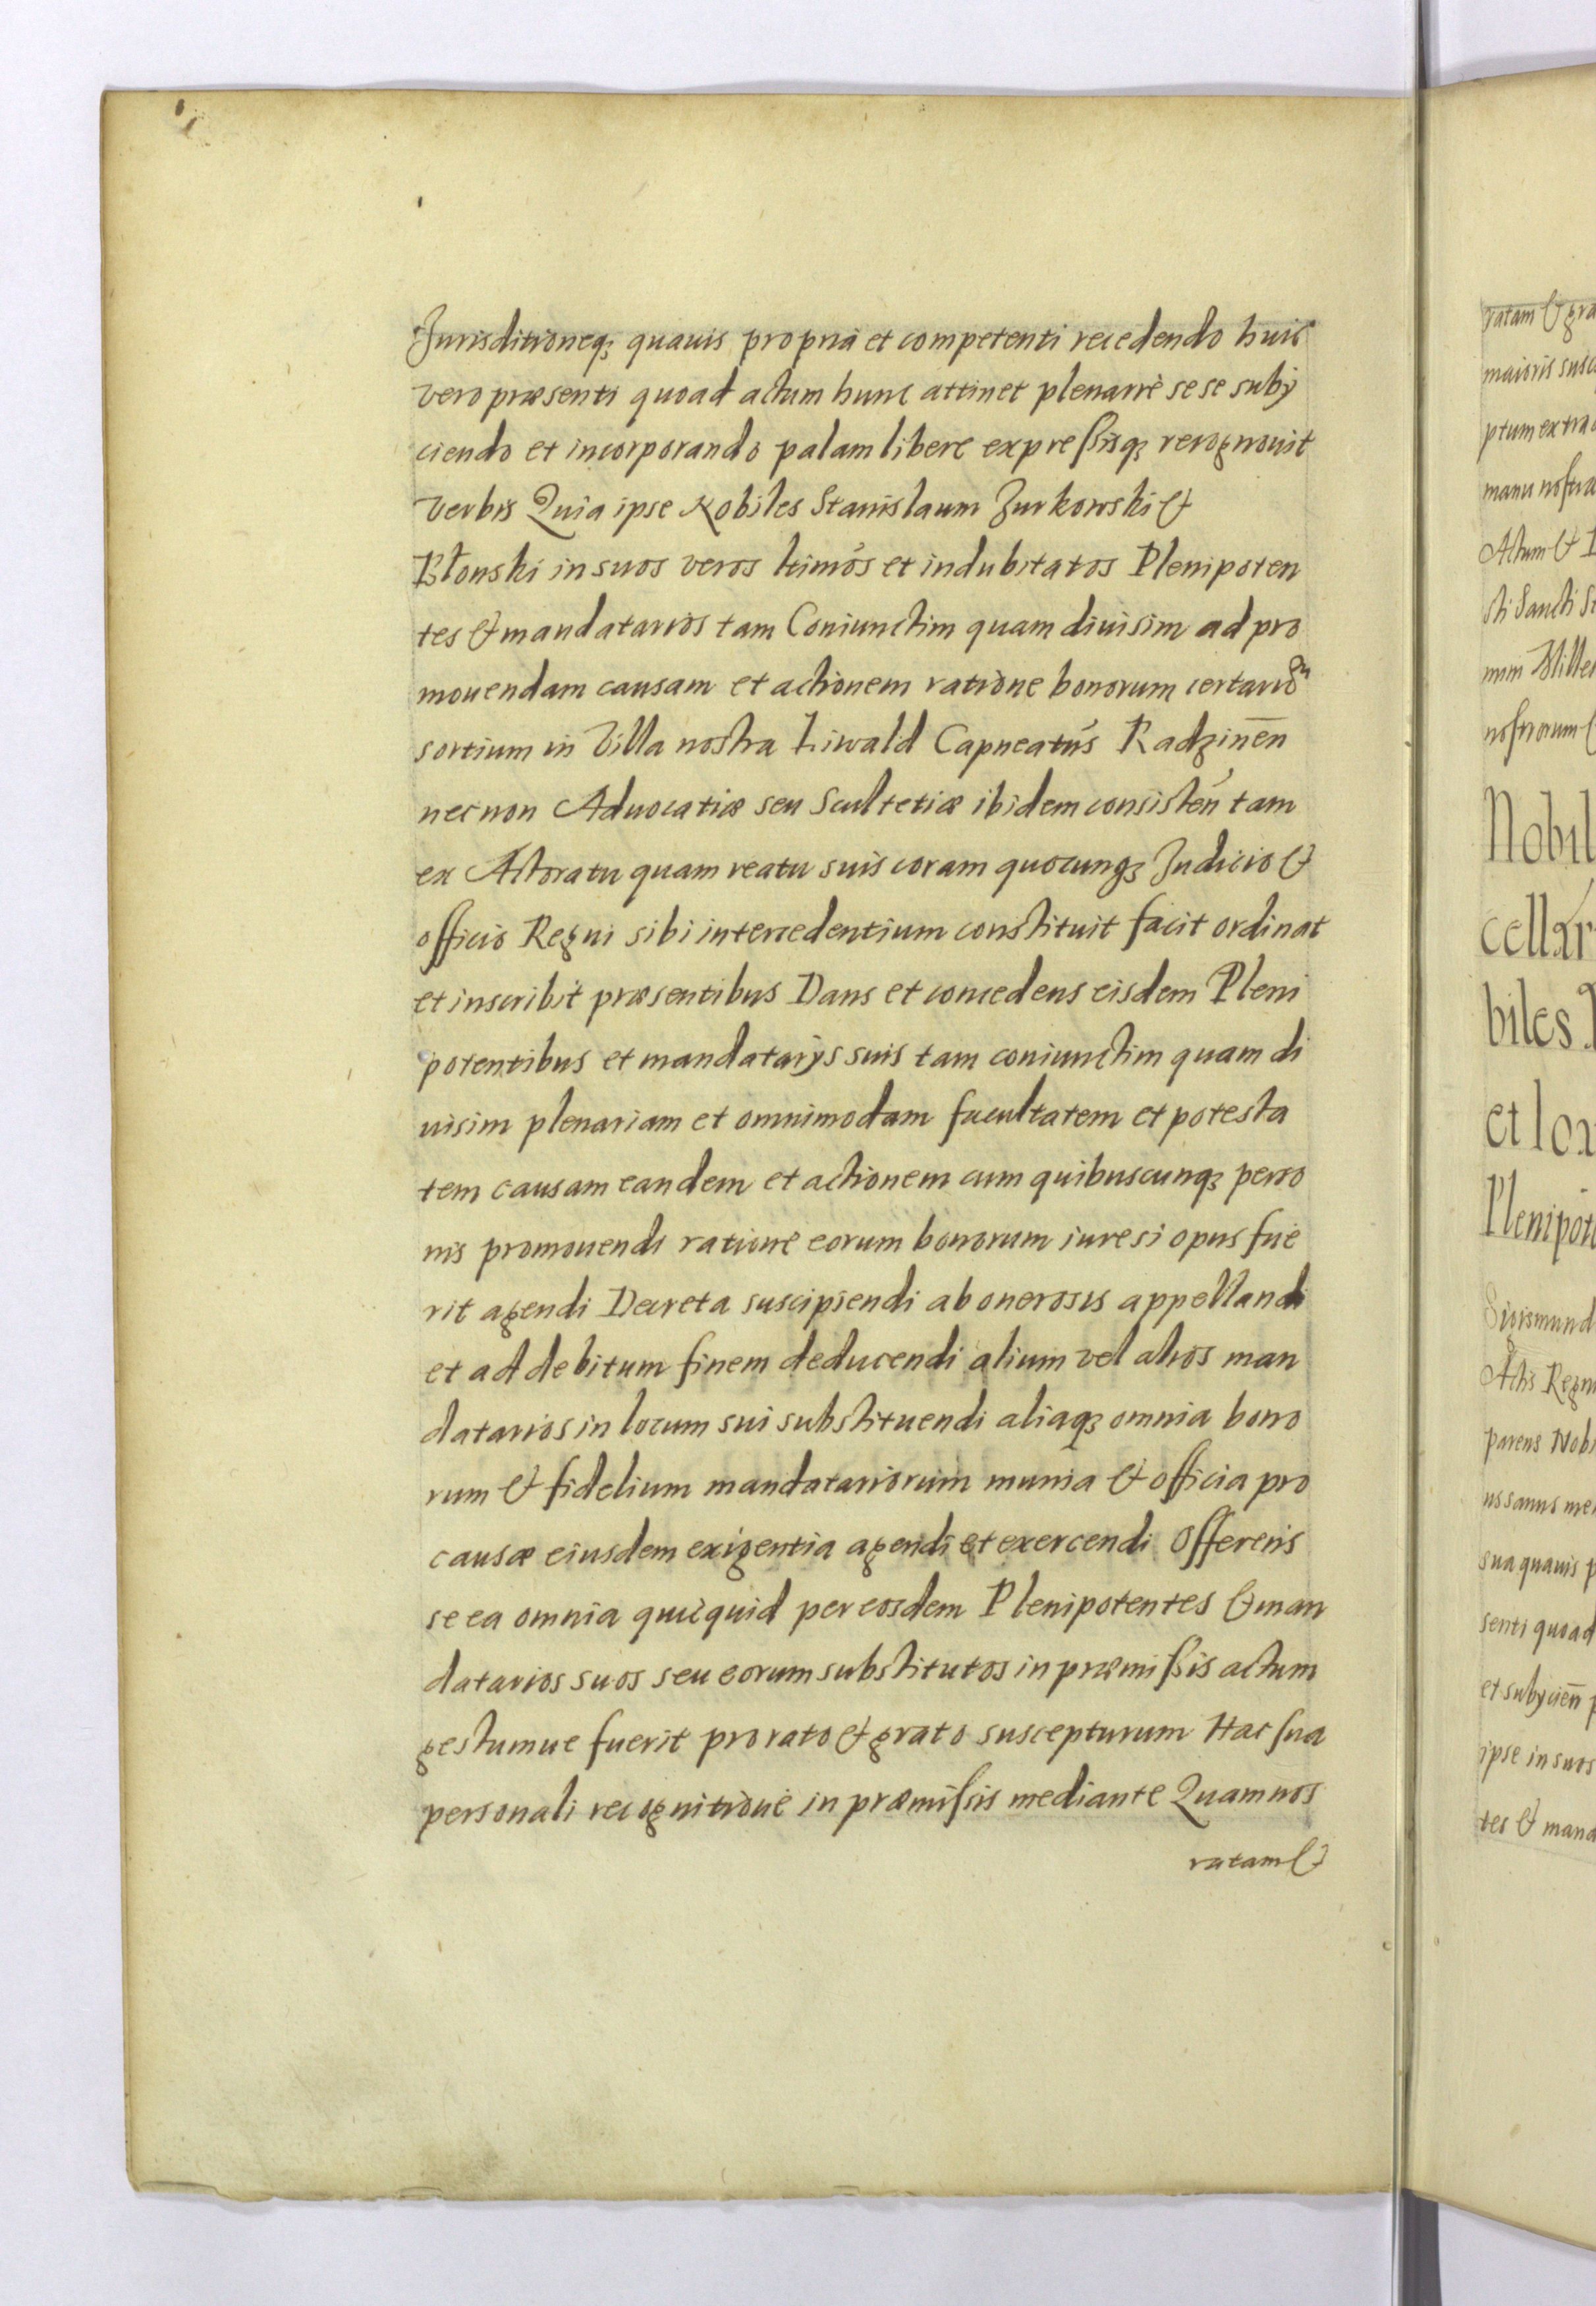 Jurisditioneq3 quauis propria et competenti recedendo huic
vero præsenti quoad actum hunc attinet plenariè se se subÿ
ciendo et incorporando palam libere expressisq3 recognouit
verbis Quia ipse Nobiles Stanislaum Zurkowski &
Błonski in suos veros ltimós et indubitatos Plenipoten
tes & mandatarios tam Coniunctim quam diuisim ad pro
mouendam causam et actionem ratione bonorum certarum
sortium in Villa nostra Liwald Capneatús Radzinen̄
necnon Aduocatiæ seu Scultetiæ ibidem consistén tam
ex Actoratu quam reatu suis coram quocunq3 Judicio &
officio Regni sibi intercedentium constituit facit ordinat
et inscribit præsentibus Dans et concedens eisdem Pleni
potentibus et mandatarÿs suis tam coniunctim quam di
uisim plenariam et omnimodam facultatem et potesta
tem causam eandem et actionem cum quibuscunq3 perso
nis promouendi ratione eorum bonorum iure si opus fue
rit agendi Decreta suscipiendi ab onerosis appellandi
et ad debitum finem deducendi alium vel alios man
datarios in locum sui substituendi aliaq3 omnia bono
rum & fidelium mandatariorum munia & officia pro
causæ eiusdem exigentia agendi et exercendi Offerens
se ea omnia quicquid per eosdem Plenipotentes & man
datarios suos seu eorum substitutos in præmissis actum
gestumue fuerit pro rato & grato suscepturum Hac sua
personali recognitione in præmissis mediante Quam nos
ratam &
ratam & gra
maioris susc
ptum extra
manu nostra
Actum &
sti Sancti S
mum Mille
nostrorum
Nobil
cellar
biles
et lo
Plenipot
Sigismund
Actis Regni
parens Nobi
us sanus me
sua quauis p
senti quoad
et subÿcien̄ p
ipse in suos
tes & mana